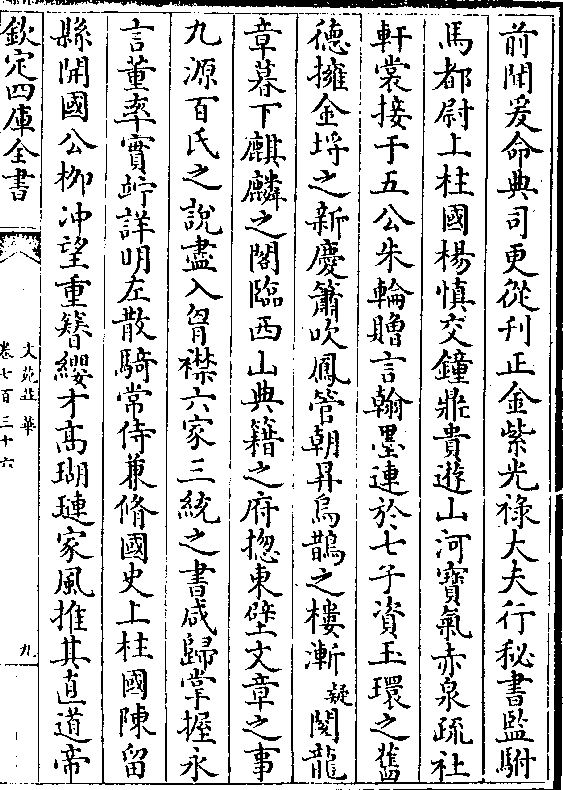 前開爰命典司更從刊正金紫光祿大夫行秘書監駙
馬都尉上柱國楊慎交鐘鼎貴遊山河寶氣赤泉疏社
軒裳接于五公朱輪贈言翰墨連於七子資玉環之舊
德擁金埒之新慶簫吹鳳管朝昇烏鵲之樓漸疑閱龍
章暮下麒麟之閣臨西山典籍之府揔東壁文章之事
九源百氏之說盡入胷襟六家三統之書咸歸掌握永
言董率實竚詳明左散騎常侍兼脩國史上柱國陳留
縣開國公柳冲望重簪纓才高瑚璉家風推其直道帝
欽定四庫全書
文苑英華
卷七百三十六
九